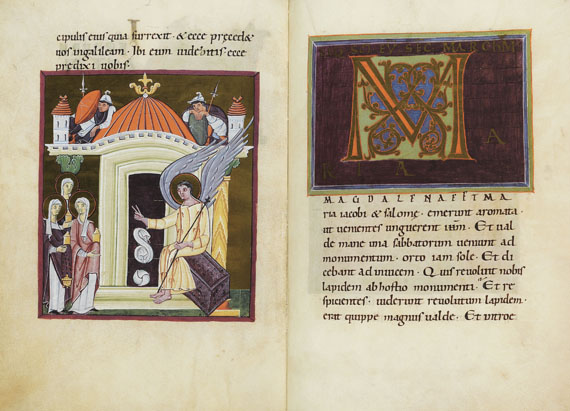 cipulis eius quia surrexit · & ecce præced&
vos ingalileam · Ibi eum videbitis · ecce
predixi vobis ·
SEC MARCUM
M
A
R I A
MAGDALENA ET MA
ria iacobi & salome · emerunt aromata ·
ut venientes unguerent ihm · Et val
de mane una sabbatorum veniunt ad
monumentum · orto iam sole · Et di
cebant ad invicem · Quis revolvet nobis
lapidem ab hostio monumenti · Et re
spicientes · viderunt revolutum lapidem ·
erat quippe magnus valde · Et introe